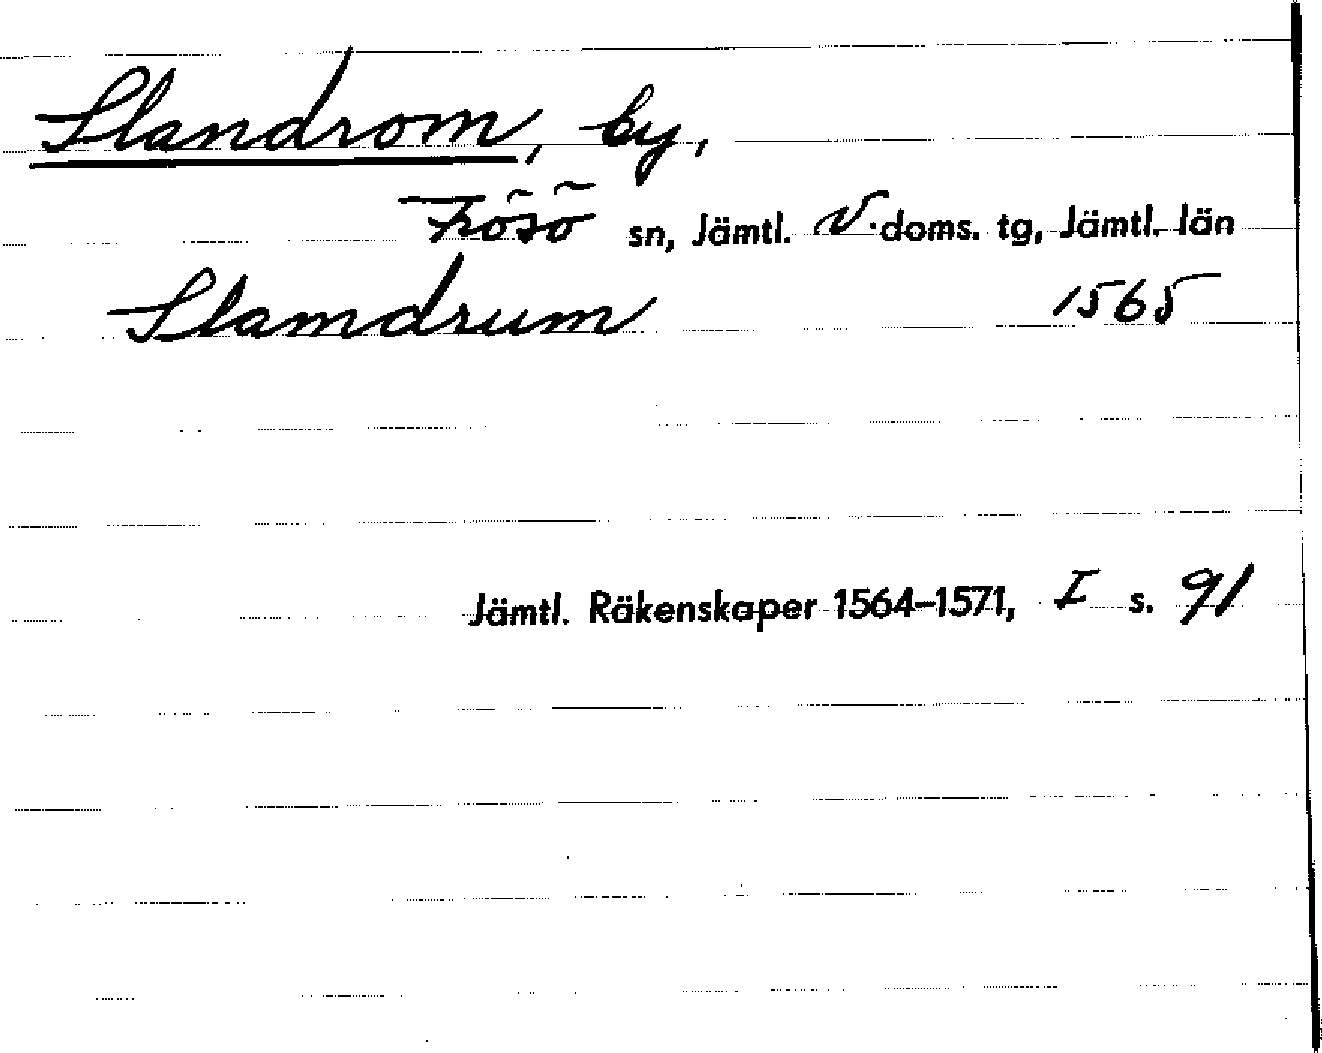 Slandrom, by,
Frösö sn, Jämtl. v. doms. tg, Jämtl. län
Slamdrum 1565
Jämtl. Räkenskaper 1564–1571, I s. 91